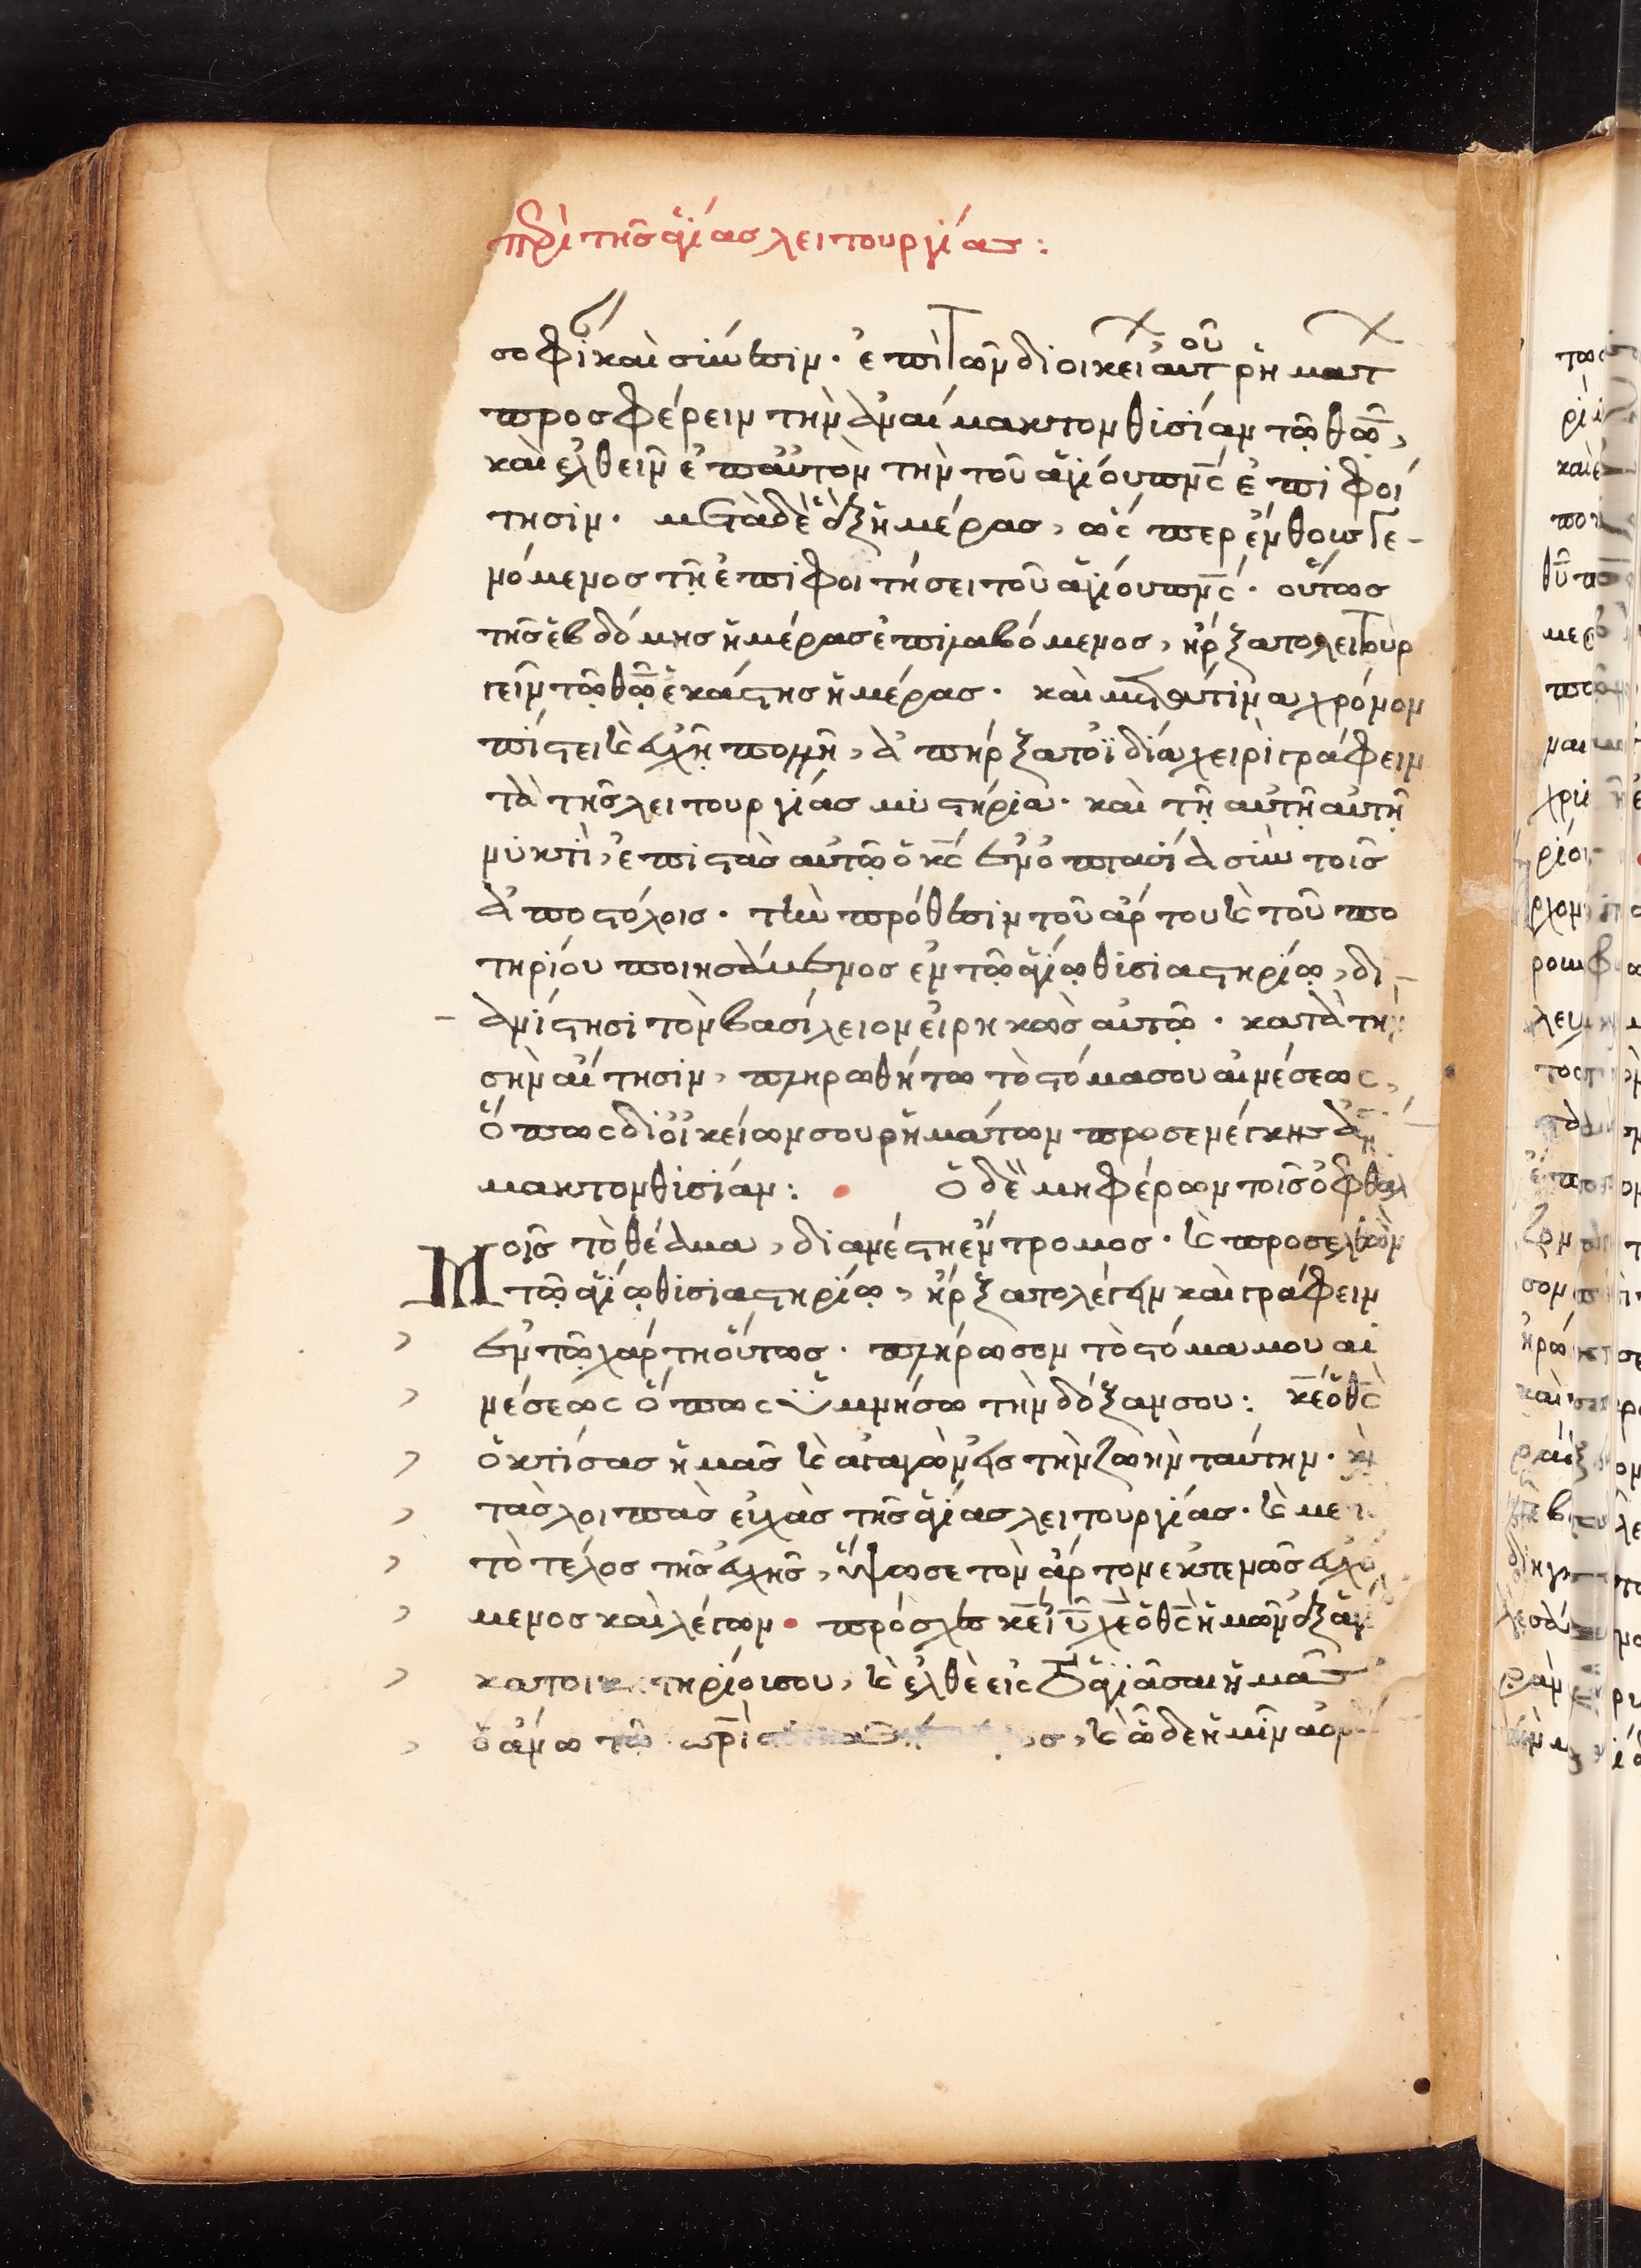 περὶ τῆς ἁγίας λειτουργίας :
σοφί καὶ σύνεσιν · ἐπὶ τῶν δι οἰκείων αὐτοῦ ρημάτ
προσφέρειν τὴν ἀναίμακτον θυσίαν τῷ θῷ,
καὶ ἐλθεῖν ἐπ αὐτὸν τὴν τοῦ ἁγίου πνς ἐπιφοί
τησιν · μετὰ δὲ ἓξ ἡμέρας, ὥς περ ἔνθους γε-
νόμενος τῇ ἐπιφοιτήσει τοῦ ἁγίου πνς · οὕτως
τῆς ἑβδόμης ἡμέρας ἐπιλαβόμενος, ἤρξατο λειτουρ
γεῖν τῷ θῷ ἑκάστης ἡμέρας · καὶ μετά τινα χρόνον
πίστει καὶ εὐχῇ πολλῇ, ἀπήρξατο ἰδίᾳ χειρὶ γράφειν
τὰ τῆς λειτουργίας μυστήρια · καὶ τῇ αὐτῇ αὐτῇ
νυκτὶ, ἐπιστὰς αὐτῷ ὁ κς ἐν ὀπτασίᾳ σὺν τοῖς
ἀποστόλοις · τὴν πρόθεσιν τοῦ ἄρτου καὶ τοῦ πο
τηρίου ποιησάμενος ἐν τῷ ἁγίῳ θυσιαστηρίῳ, δι-
ανίστησι τὸν βασίλειον εἰρηκὼς αὐτῷ · κατὰ τὴν
σὴν αἴτησιν, πληρωθήτω τὸ στόμα σου αἰνέσεως,
ὅπως δι οἰκείων σου ρημάτων προσενέγκῃς ἀναί
μακτον θυσίαν : ὁ δὲ μὴ φέρων τοῖς ὀφθαλ
μοῖς τὸ θέαμα, διανέστη ἔντρομος · καὶ προσελθὼν
τῷ ἁγίῳ θυσιαστηρίῳ, ἤρξατο λέγειν καὶ γράφειν
ἐν τῷ χάρτῃ οὕτως · πλήρωσον τὸ στόμα μου αἰ
νέσεως ὅπως ὑμνήσω τὴν δόξαν σου : κε ὁ θς
ὁ κτίσας ἡμᾶς καὶ ἀγαγὼν εἰς τὴν ζωὴν ταύτην · καὶ
τὰς λοιπὰς εὐχὰς τῆς ἁγίας λειτουργίας · καὶ με
τὸ τέλος τῆς εὐχῆς, ὕψωσε τὸν ἄρτον ἐκτενῶς εὐχό
μενος καὶ λέγων · πρόσχες κε ιυ χε ὁ θς ἡμῶν ἐξ ἁγί
κατοικητηρίου σου, καὶ ἐλθὲ εἰς τὸ ἁγιάσαι ἡμᾶς
ὁ ἄνω τῷ πρὶ συγκαθήμενος, καὶ ὧδε ἡμῖν ἀορ